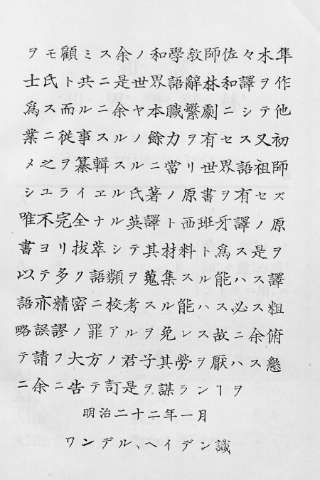 ヲモ顧ミス余ノ和學敎師佐々木隼
士氏ト共ニ是世界語辭林和譯ヲ作
爲ス而ルニ余ヤ本職繁劇ニシテ他
業ニ從事スルノ餘力ヲ有セス又初
メ之ヲ纂輯スルニ當リ世界語祖師
シユライエル氏著ノ原書ヲ有セズ
唯不完全ナル英譯ト西班牙譯ノ原
書ヨリ拔萃シテ其材料ト爲ス是ヲ
以テ多ク語類ヲ蒐集スル能ハス譯
語亦精密ニ校考スル能ハス必ス粗
略誤謬ノ罪アルヲ免レス故ニ余俯
テ請フ大方ノ君子其勞ヲ厭ハス懇
ニ余ニ告テ訂是ヲ謀ランヿヲ
明治二十二年一月
ワンデル、ヘイデン識